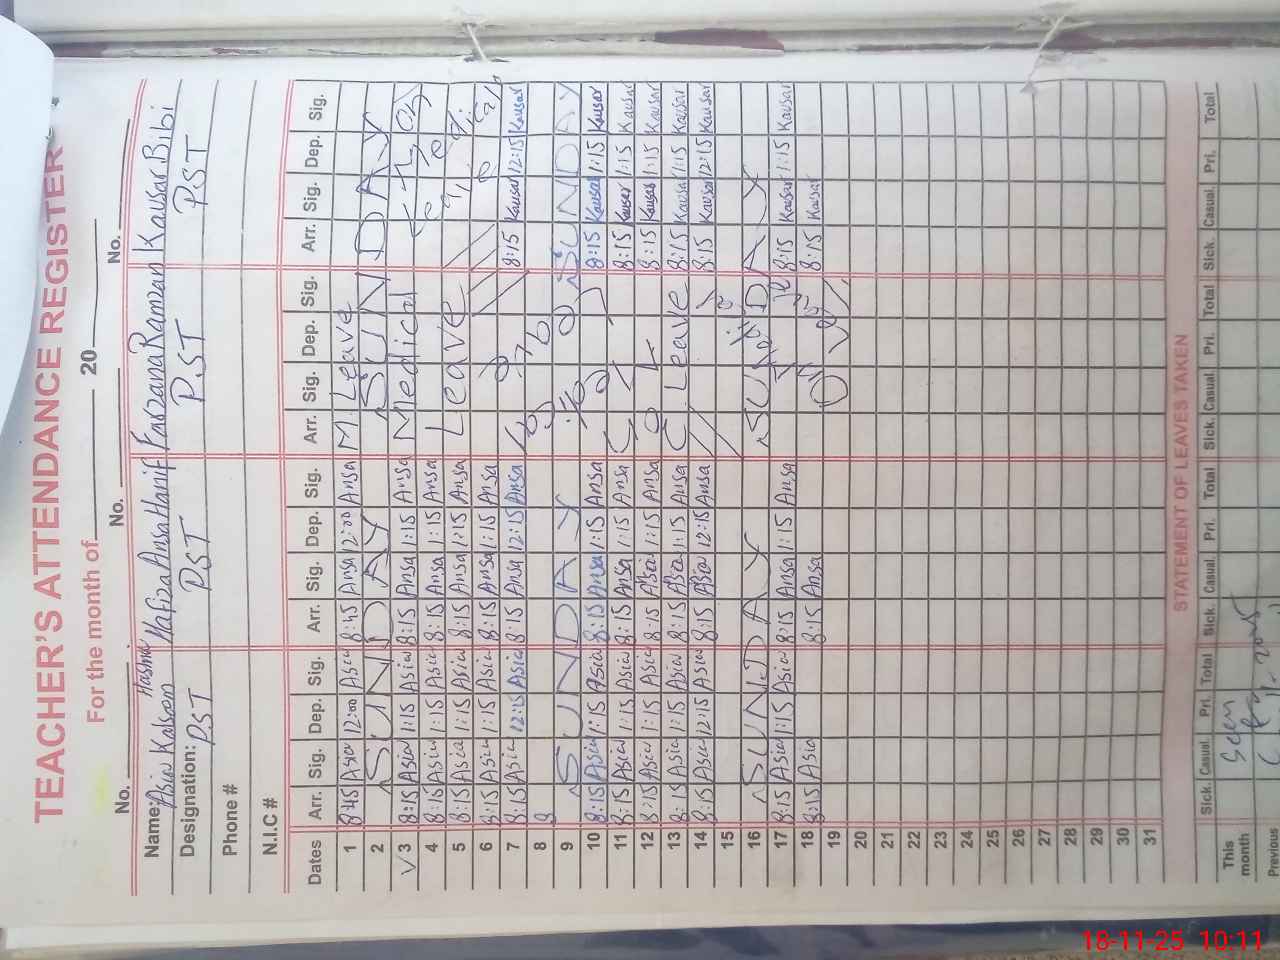 TEACHER'S ATTENDANCE REGISTER
For the month of 20
No. No. No. No.
Name: Asia Kalsoom Hafiza Ansa Hanif Farzana Ramzan Kausar Bibi
Designation: PST PST PST PST
Phone #
N.I.C #
Dates Arr. Sig. Dep. Sig. Arr. Sig. Dep. Sig. Arr. Sig. Dep. Sig. Arr. Sig. Dep. Sig.
1 8:45 Asia 12:00 Asia 8:45 Ansa 12:00 Ansa M. Leave
2 SUNDAY SUNDAY
3 8:15 Asia 1:15 Asia 8:15 Ansa 1:15 Ansa Medical
4 8:15 Asia 1:15 Asia 8:15 Ansa 1:15 Ansa
5 8:15 Asia 1:15 Asia 8:15 Ansa 1:15 Ansa Leave
6 8:15 Asia 1:15 Asia 8:15 Ansa 1:15 Ansa
7 8:15 Asia 12:15 Asia 8:15 Ansa 12:15 Ansa 8:15 Kausar 12:15 Kausar
8
9 SUNDAY SUNDAY
10 8:15 Asia 1:15 Asia 8:15 Ansa 1:15 Ansa 8:15 Kausar 1:15 Kausar
11 8:15 Asia 1:15 Asia 8:15 Ansa 1:15 Ansa 8:15 Kausar 1:15 Kausar
12 8:15 Asia 1:15 Asia 8:15 1:15 Ansa 8:15 Kausar 1:15 Kausar
13 8:15 Asia 1:15 Asia 8:15 1:15 Ansa C. Leave 8:15 Kausar 1:15 Kausar
14 8:15 Asia 12:15 Asia 8:15 12:15 Ansa 8:15 Kausar 12:15 Kausar
15
16 SUNDAY SUNDAY
17 8:15 Asia 1:15 Asia 8:15 Ansa 1:15 Ansa 8:15 Kausar 1:15 Kausar
18 8:15 Asia 8:15 Ansa 8:15 Kausar
19
20
21
22
23
24
25
26
27
28
29
30
31
STATEMENT OF LEAVES TAKEN
Sick. Casual Pri. Total Sick. Casual. Pri. Total Sick. Casual. Pri. Total Sick. Casual. Pri. Total
This month Seen
Previous
18-11-25 10:11